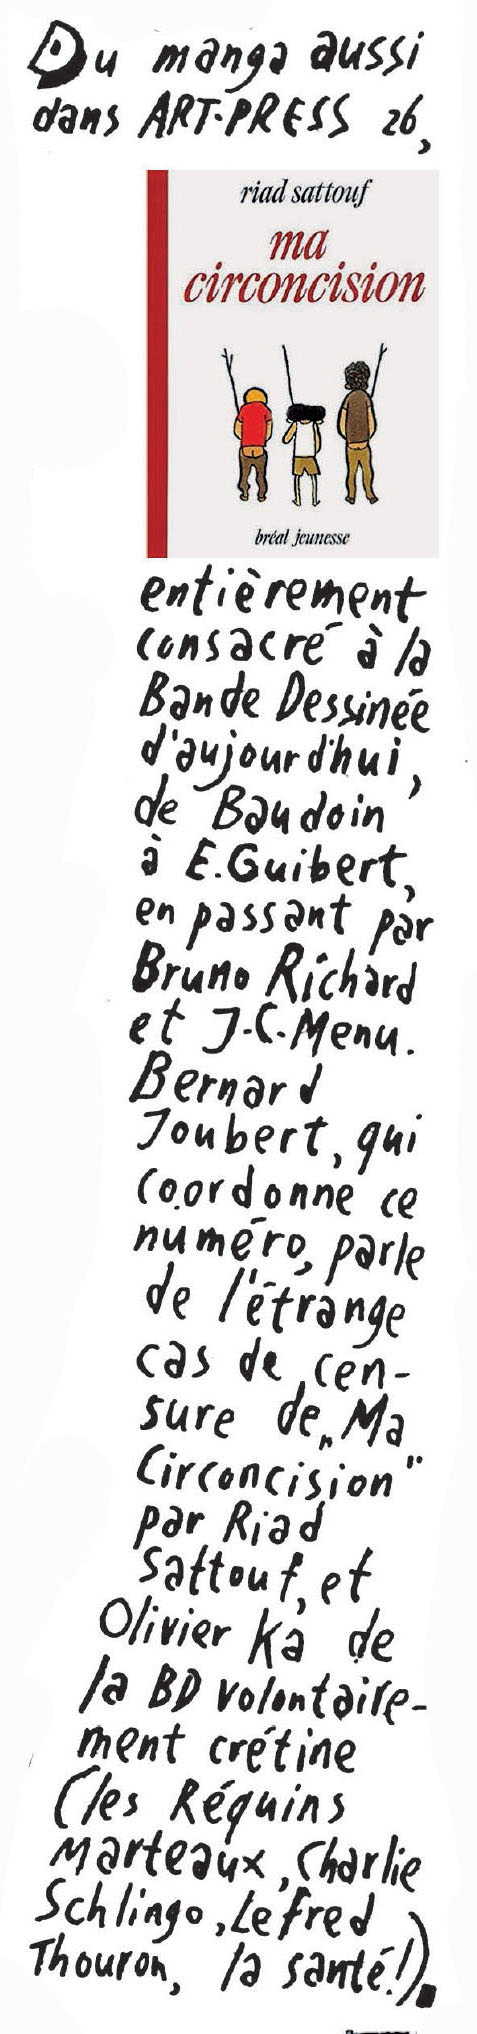 Du manga aussi
dans ART-PRESS 26,
riad sattouf
ma
circoncision
bréal jeunesse
entièrement
consacré à la
Bande Dessinée
d'aujourd'hui,
de Baudoin
à E.Guibert,
en passant par
Bruno Richard
et J-C-Menu.
Bernard
Joubert, qui
coordonne ce
numéro, parle
de l'étrange
cas de cen-
sure de „Ma
Circoncision"
par Riad
Sattouf, et
Olivier Ka de
la BD volontaire-
ment crétine
(les Réquins
Marteaux, Charlie
Schlingo, Lefred
Thouron, la santé!).